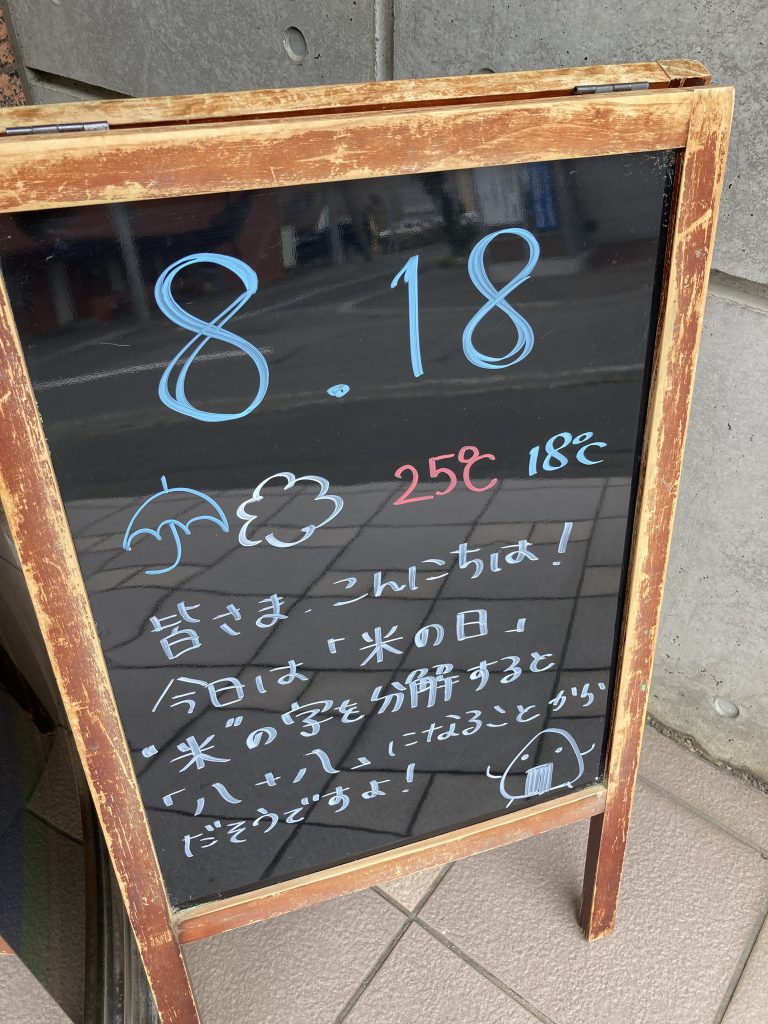 8.18
25℃ 18℃
皆さま、こんにちは!
今日は「米の日」
"米"の字を分解すると
「八十八」になることから
だそうですよ!